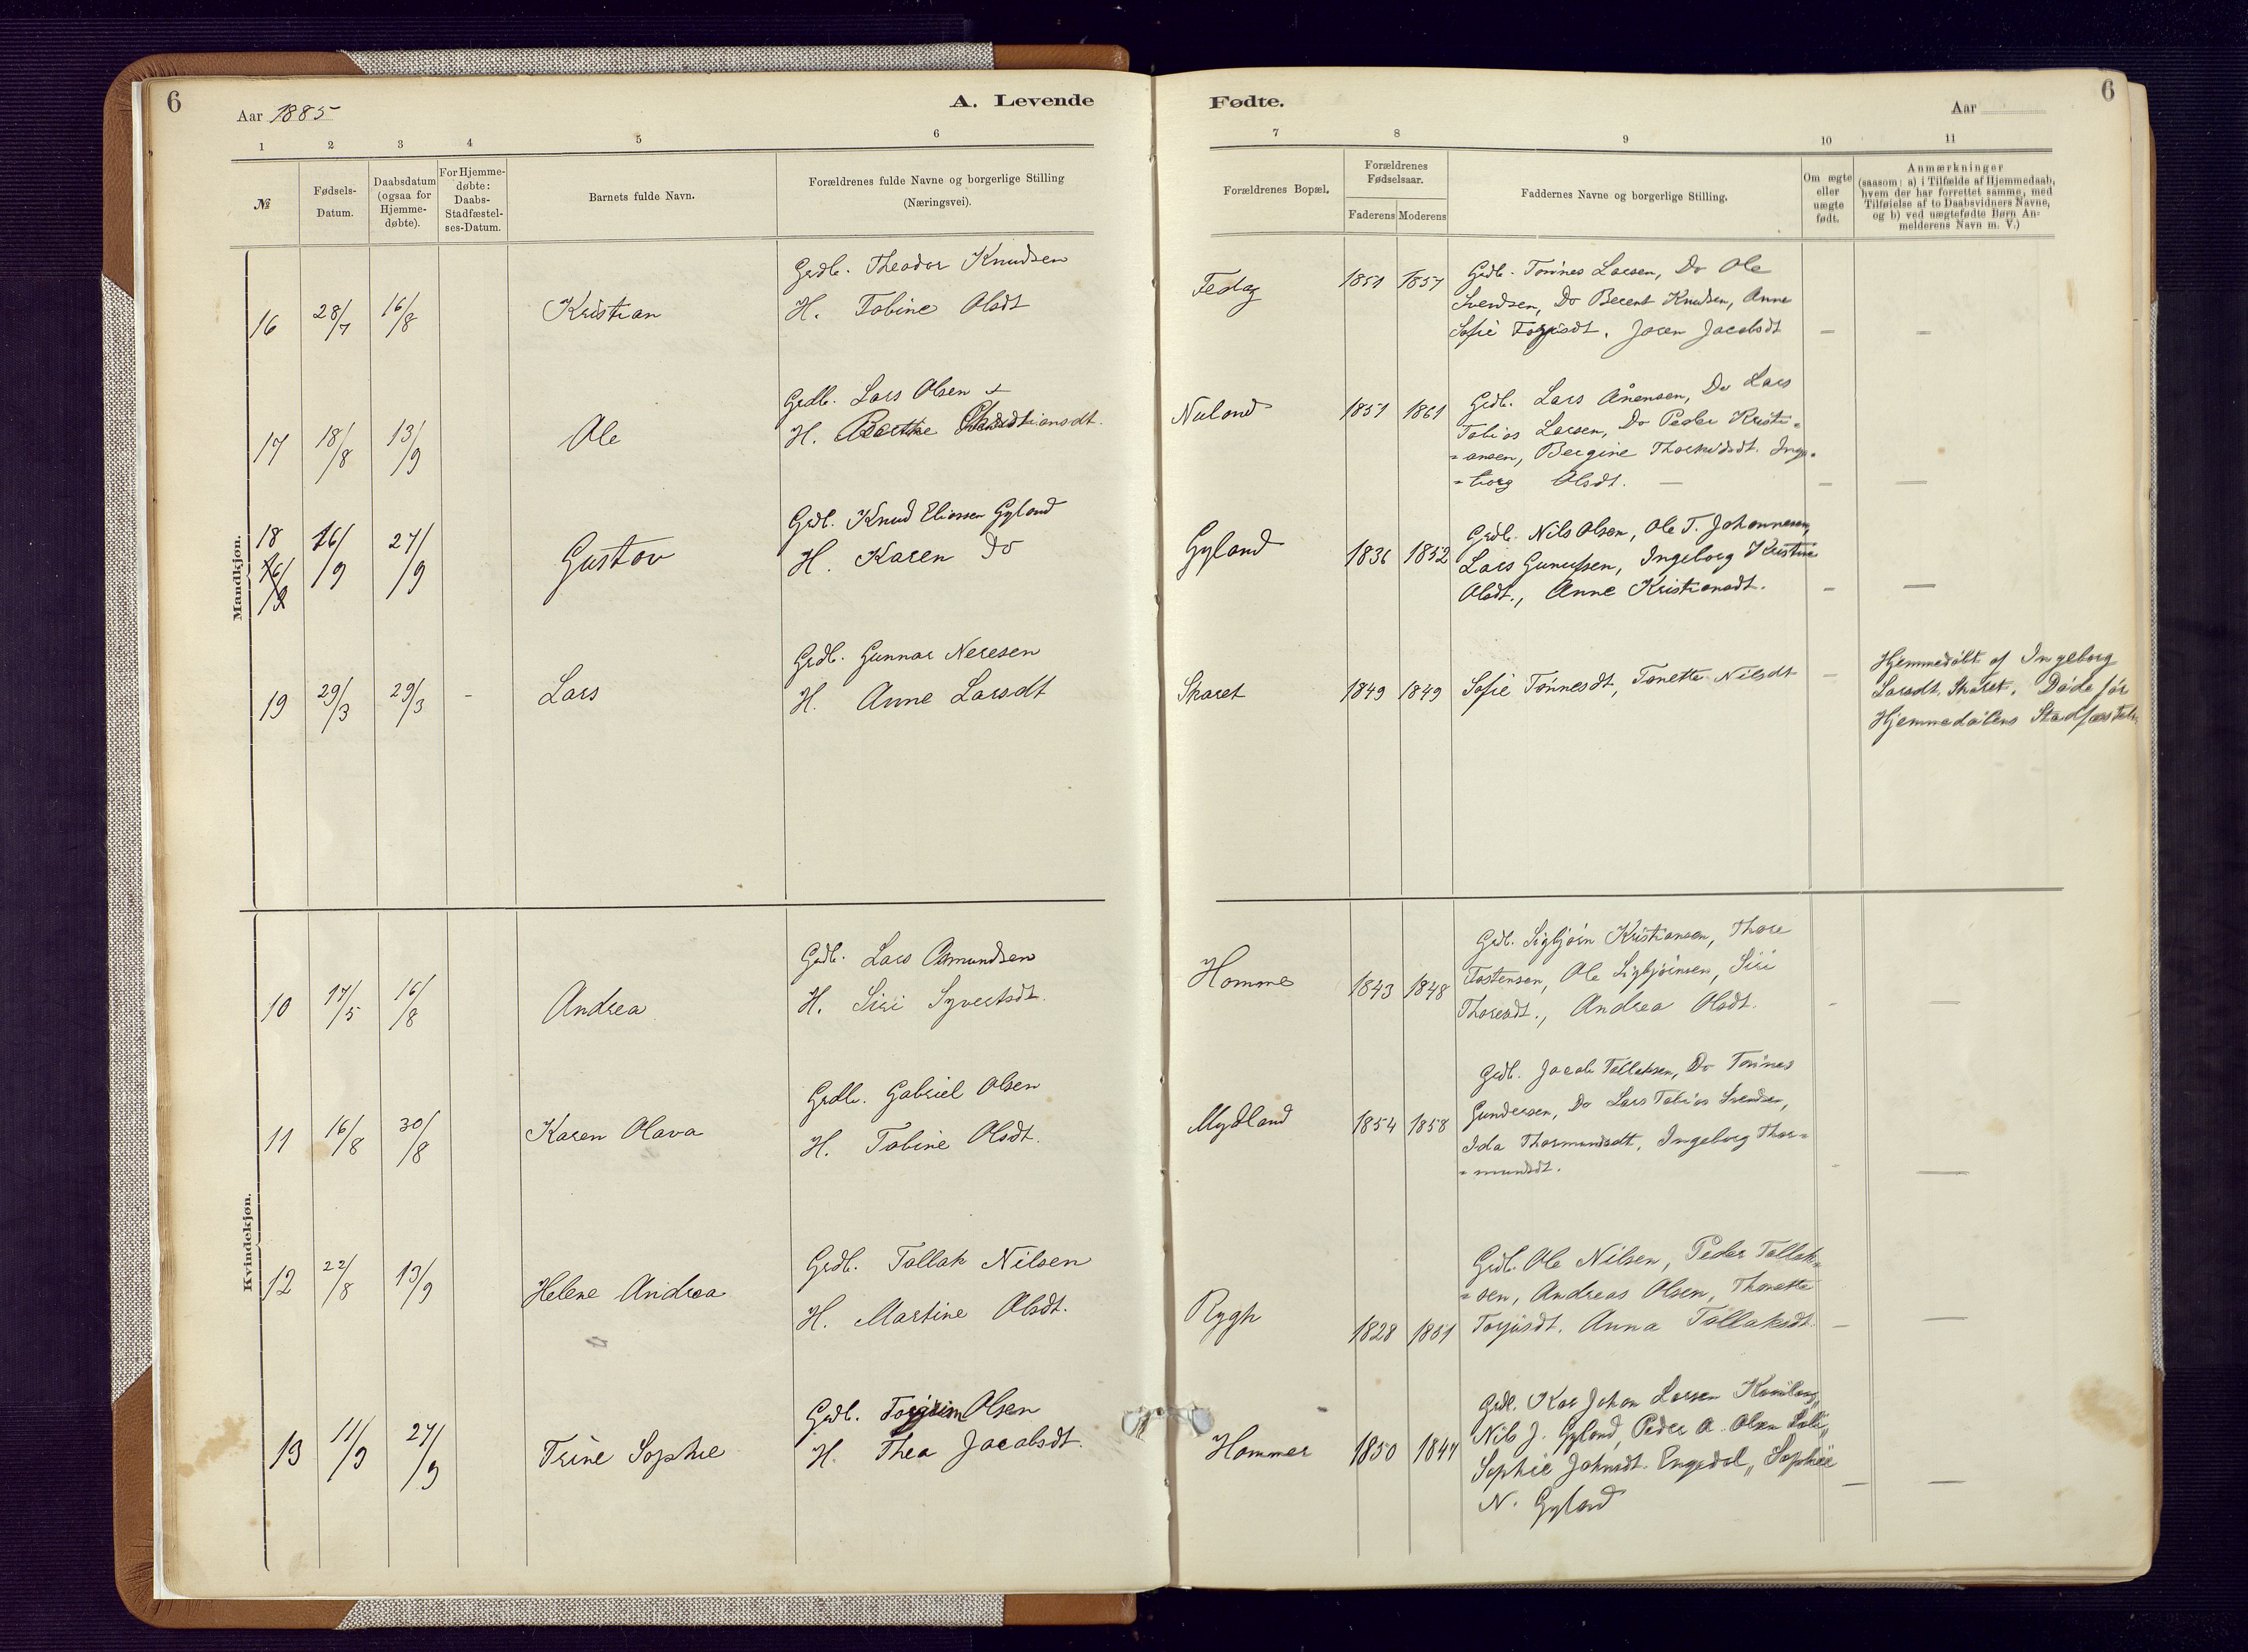 6
Aar 1885
A. Levende
Fødte.
Aar
6
1 2 3 4 5 6 7 8 9 10 11
№
Fødsels-
Datum.
Daabsdatum
(ogsaa for
Hjemme-
døbte).
For Hjemme-
døbte:
Daabs-
Stadfæstel-
ses-Datum.
Barnets fulde Navn.
Forældrenes fulde Navne og borgerlige Stilling
(Næringsvei).
Forældrenes Bopæl.
Forældrenes
Fødselsaar.
Faderens Moderens
Faddernes Navne og borgerlige Stilling.
Om ægte
eller
uægte
født.
Anmærkninger
(saasom: a) i Tilfælde af Hjemmedaab,
hvem der har forrettet samme, med
Tilføielse af to Daabsvidners Navne,
og b) ved uægtefødte Børn An-
melderens Navn m. V.)
Mandkjøn.
16 28/7 16/8 Kristian
Grdb. Theodor Knudsen
H. Tobine Olsdt
Fedog 1851 1857
Grdb. Tønnes Larsen, Do Ole
Svendsen, Do Berent Knudsen, Anne
Sofie Torjusdt. Joren Jacobsdt — —
17 18/8 13/9 Ole
Grdb. Lars Olsen +
H. Berthe Christiansdt.
Nuland 1851 1861
Grdb. Lars Ånensen, Do Lars
Tobias Larsen, Do Peder Kristi=
=ansen, Bergine Thorkildsdt. Inge=
=borg Olsdt. — — —
18 16/9 27/9 Gustav
16/9
Grdb. Knud Eliassen Gyland
H. Karen Do
Gyland 1836 1852
Grdb. Nils Olsen, Ole T. Johannesen,
Lars Gunufsen, Ingeborg Kristine
Olsdt., Anne Kristiansdt. — —
19 29/3 29/3 - Lars
Grdb. Gunnar Neresen
H. Anne Larsdt
Skaret 1849 1849
Sofie Tønnesdt, Tonette Nilsdt —
Hjemmedøbt af Ingeborg
Larsdt. Skaret. Døde før
Hjemmedåbens Stadfæstelse
Kvindekjøn.
10 17/5 16/8 Andrea
Grdb. Lars Asmundsen
H. Siri Syvertsdt.
Homme 1843 1848
Grdb. Sigbjørn Kristiansen, Thore
Tostensen, Ole Sigbjørnsen, Siri
Thoresdt., Andrea Olsdt. - —
11 16/8 30/8 Karen Olava
Grdb. Gabriel Olsen
H. Tobine Olsdt.
Mydland 1854 1858
Grdb. Jacob Tallaksen, Do Tønnes
Gundersen, Do Lars Tobias Svendsen,
Ida Thormundsdt, Ingeborg Thor=
=mundsdt. - —
12 22/8 13/9 Helene Andrea
Grdb. Tallak Nilsen
H. Martine Olsdt.
Rygh 1828 1851
Grdb. Ole Nilsen, Peder Tallak=
=sen, Andreas Olsen, Thonette
Torjusdt. Anna Tallaksdt. — —
13 11/9 27/9 Trine Sophie
Grdb. Torgrim Olsen
H. Thea Jacobsdt.
Hommer 1850 1847
Grdb. Johan Larsen
Nils J. Gyland, Peder A. Olsen
Sophie Johnsdt. Engedal, Sophie
N. Gyland — —